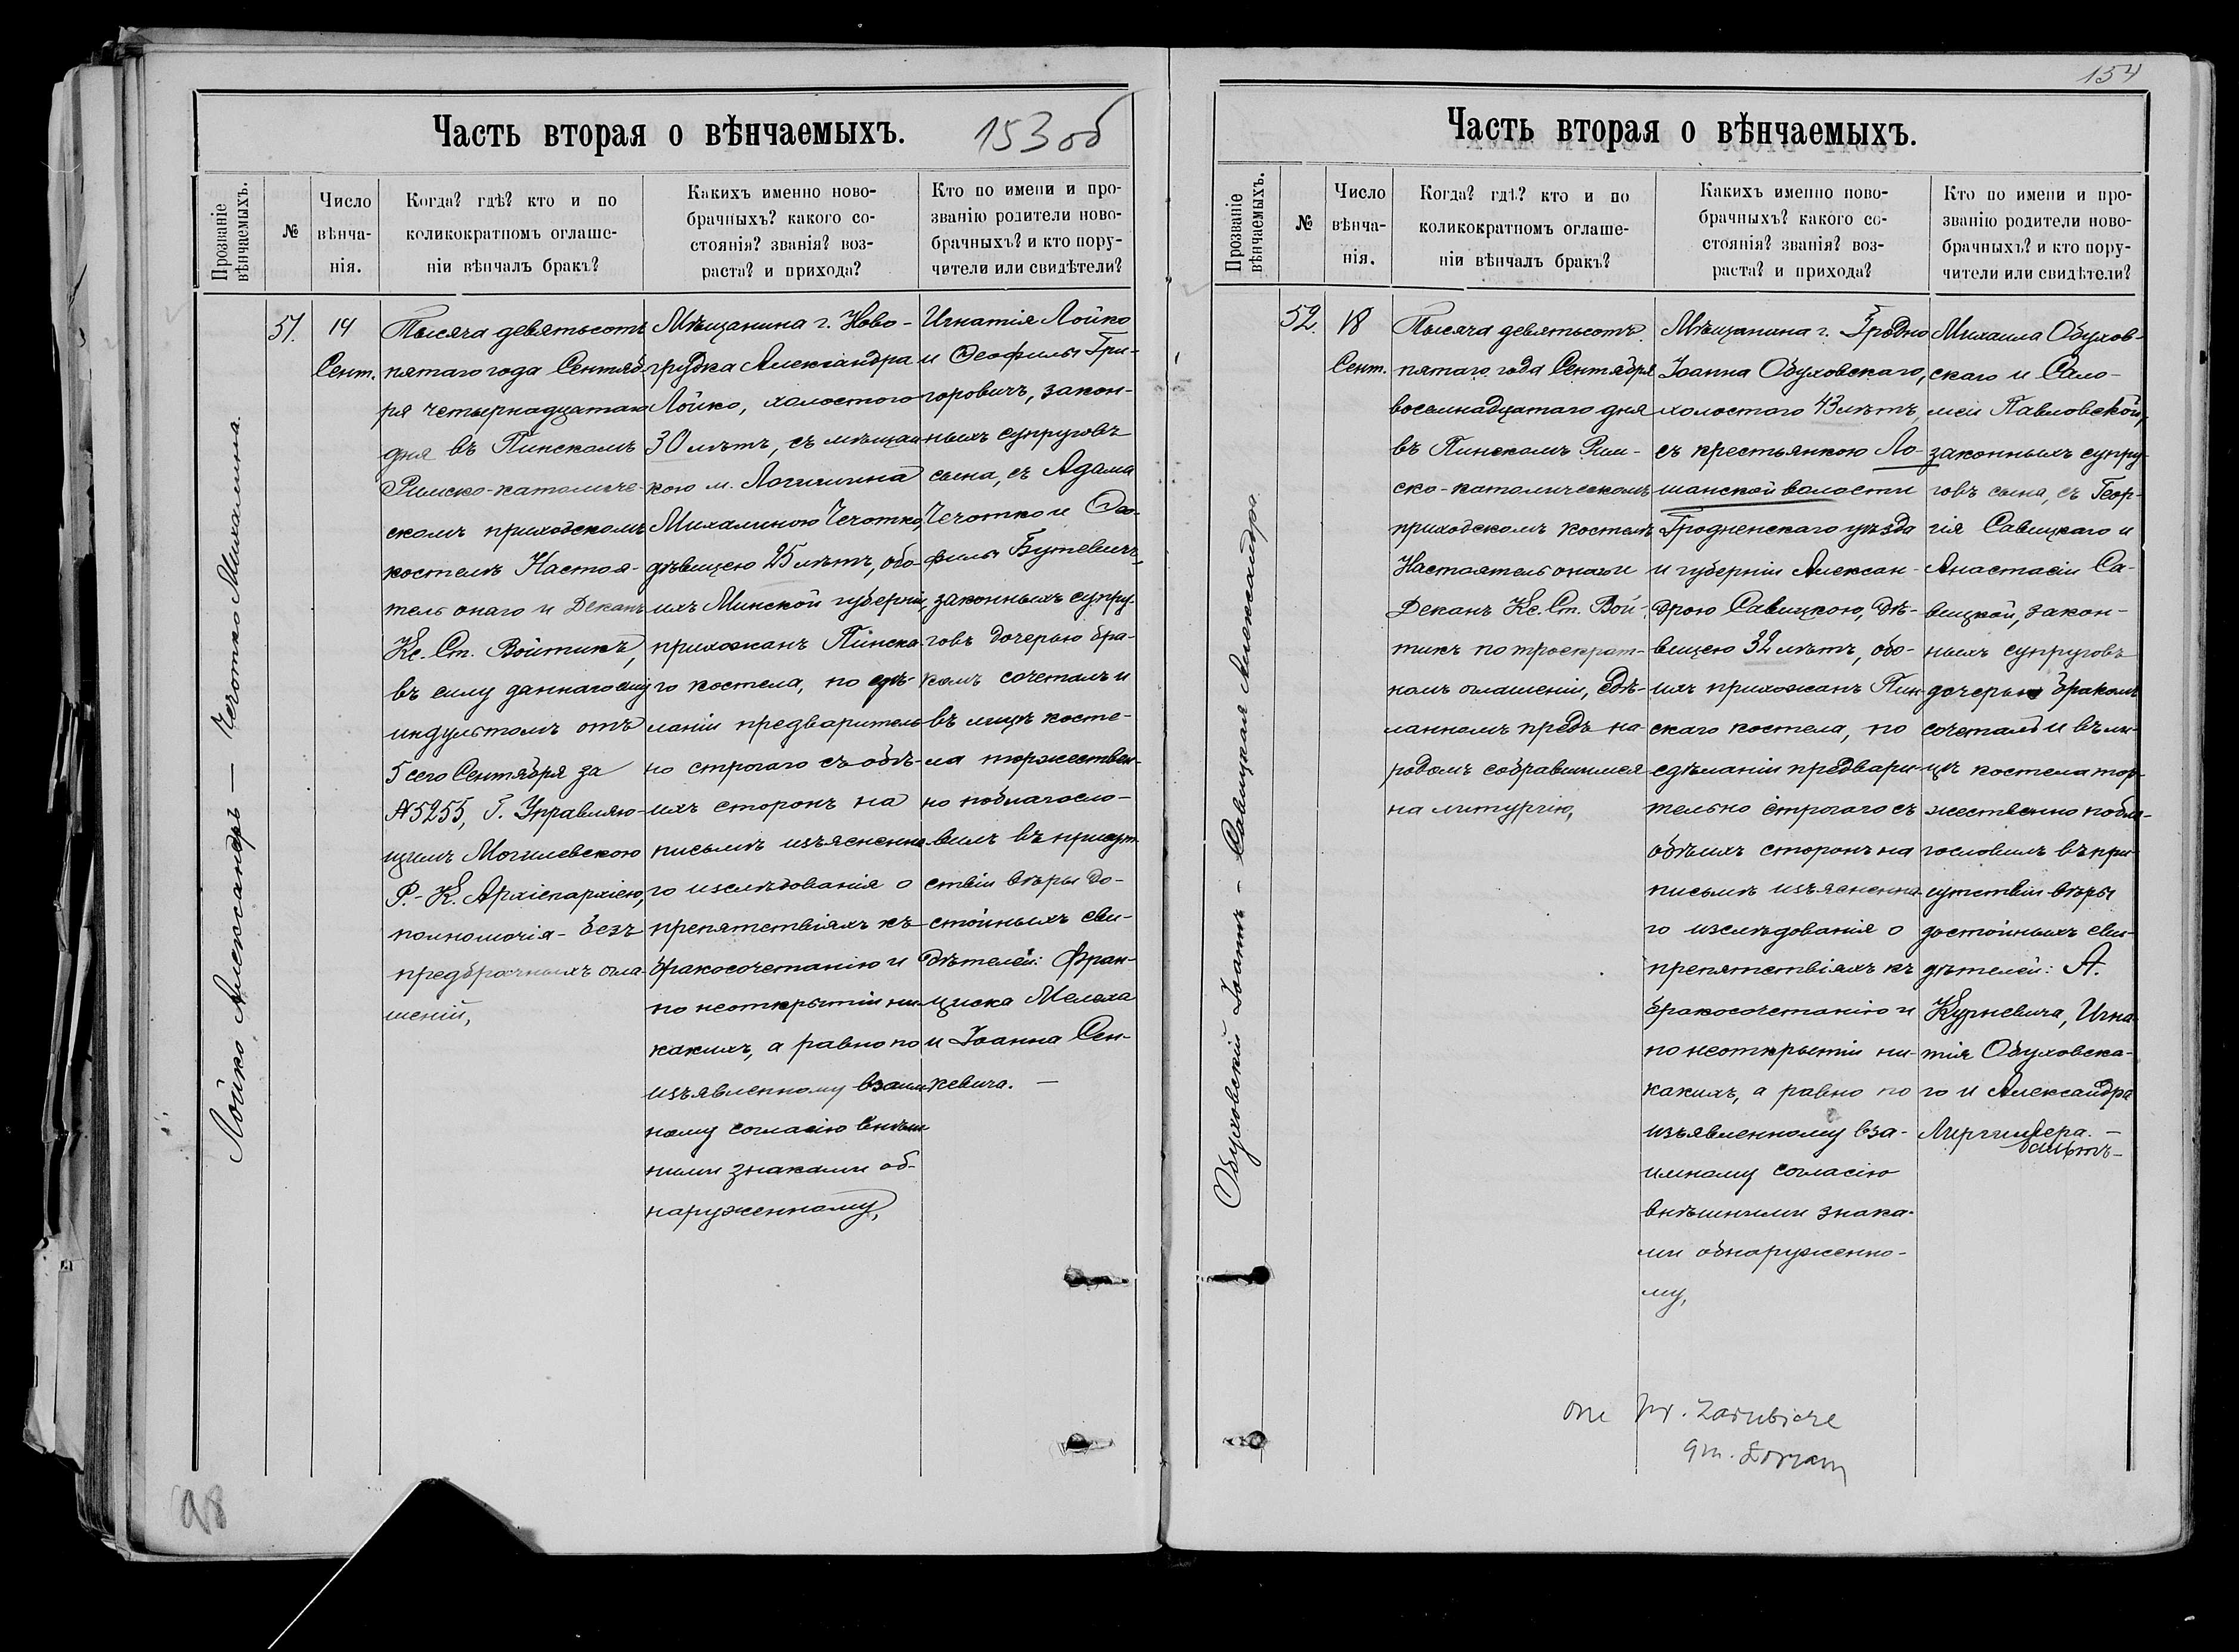 Часть вторая о вѣнчаемыхъ.
153 об
Прозваніе вѣнчаемыхъ.
№
Число
вѣнча-
нія.
Когда? гдѣ? кто и по
коликократномъ оглаше-
ніи вѣнчалъ бракъ?
Какихъ именно ново-
брачныхъ? какого со-
стоянія? званія? воз-
раста? и прихода?
Кто по имени и про-
званію родители ново-
брачныхъ? и кто пору-
чители или свидѣтели?
Лойко Александръ — Чечотко Михалина.
51.
14
Сент.
Тысяча девятьсотъ
пятаго года Сентяб-
ря четырнадцатаго
дня въ Пинскомъ
Римско-католиче-
скомъ приходскомъ
костелѣ Настоя-
тель онаго и Деканъ
Кс. Ст. Войтикъ,
въ силу даннаго ему
индультомъ отъ
5 сего Сентября за
№5255, Г. Управляю-
щимъ Могилевскою
Р.-К. Архіепархіею,
полномочія - безъ
предбрачныхъ огла-
шеній,
Мѣщанина г. Ново-
грудка Александра
Лойко, холостого
30 лѣтъ, съ мѣщан
кою м. Логишина
Михалиною Чечотко,
дѣвицею 25 лѣтъ, обо-
ихъ Минской губерніи,
прихожанъ Пинска-
го костела, по сдѣ-
ланіи предваритель
но строгаго съ обѣ-
ихъ сторонъ на
письмѣ изъясненна-
го изслѣдованія о
препятствіяхъ къ
бракосочетанію и
по неоткрытіи ни
какихъ, а равно по
изъявленному взаим
ному согласію внѣш
ними знаками об-
наруженному,
Игнатія Лойко
и Теофили Гри-
горовичъ, закон-
ныхъ супруговъ
сына, съ Адама
Чечотко и Тео-
фили Бутевичъ,
законныхъ супру-
говъ дочерью бра-
комъ сочеталъ и
въ лицѣ косте-
ла торжествен-
но поблагосло-
вилъ въ присут-
ствіи вѣры до-
стойныхъ сви-
дѣтелей: Фран-
циска Мелеха
и Іоанна Сен-
кевича. —
98
154
Часть вторая о вѣнчаемыхъ.
Прозваніе вѣнчаемыхъ.
№
Число
вѣнча-
нія.
Когда? гдѣ? кто и по
коликократномъ оглаше-
ніи вѣнчалъ бракъ?
Какихъ именно ново-
брачныхъ? какого со-
стоянія? званія? воз-
раста? и прихода?
Кто по имени и про-
званію родители ново-
брачныхъ? и кто пору-
чители или свидѣтели?
Обуховскій Іоаннъ - Савицкая Александра.
52.
18
Сент.
Тысяча девятьсотъ
пятаго года Сентября
восемнадцатаго дня
въ Пинскомъ Рим-
ско-католическомъ
приходскомъ костелѣ
Настоятель онаго и
Деканъ Кс. Ст. Вой-
тикъ по троекрат-
номъ оглашеніи, сдѣ-
ланномъ предъ на-
родомъ собравшимся
на литургію,
Мѣщанина г. Гродно
Іоанна Обуховскаго,
холостого 43 лѣтъ
съ крестьянкою Ло-
шанской волости
Гродненскаго уѣзда
и губерніи Алексан-
дрою Савицкою, дѣ-
вицею 32 лѣтъ, обо-
ихъ прихожанъ Пин-
скаго костела, по
сдѣланіи предвари-
тельно строгаго съ
обѣихъ сторонъ на
письмѣ изъясненна-
го изслѣдованія о
препятствіяхъ къ
бракосочетанію и
по неоткрытіи ни-
какихъ, а равно по
изъявленному вза-
имному согласію
внѣшними знака-
ми обнаруженно-
му,
Михаила Обухов-
скаго и Сало-
меи Павловской,
законныхъ супру-
говъ сына, съ Геор-
гія Савицкаго и
Анастасіи Са-
вицкой, закон-
ныхъ супруговъ
дочерью бракомъ
сочеталъ и въ ли-
цѣ костела тор-
жественно побла-
гословилъ въ при-
сутствіи вѣры
достойныхъ сви-
дѣтелей: А.
Курневича, Игна-
тія Обуховска-
го и Александра
one
gm.